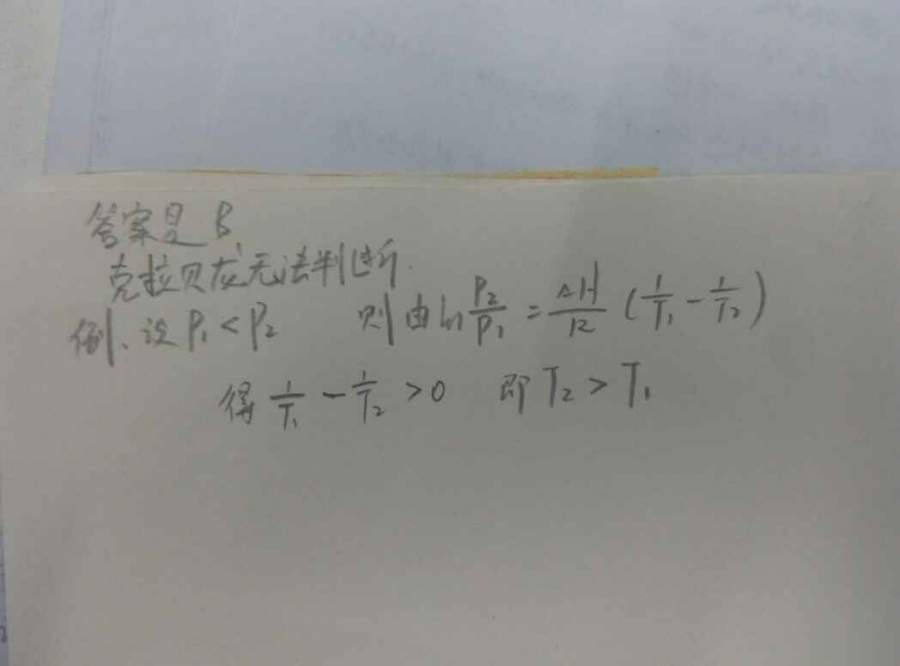 答案是 B
克拉贝龙无法判断.
例、设 P₁ < P₂ 则由 ln P₂/P₁ = ΔH/R (1/T₁ - 1/T₂)
得 1/T₁ - 1/T₂ > 0 即 T₂ > T₁